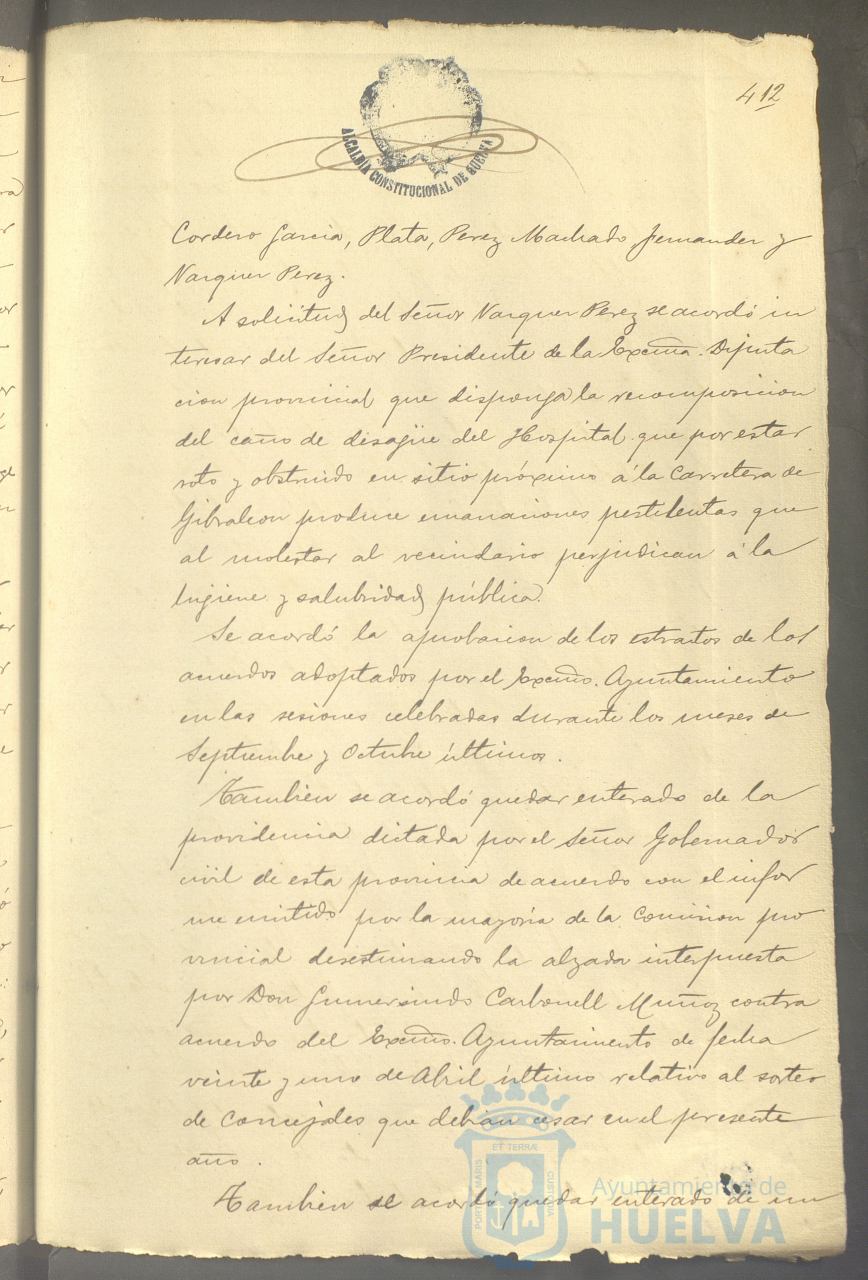 412
ALCALDIA CONSTITUCIONAL DE HUELVA
Cordero Garcia, Plata, Perez Machado, Fernandez y
Vazquez Perez.
A solicitud del Señor Vazquez Perez se acordó in
teresar del Señor Presidente de la Excma. Diputa
cion provincial que disponga la recomposicion
del caño de desagüe del Hospital que por estar
roto y obstruido en sitio próximo á la Carretera de
Gibraleon produce emanaciones pestilentas que
al molestar al vecindario perjudican á la
higiene y salubridad pública.
Se acordó la aprobacion de los estratos de los
acuerdos adoptados por el Excmo. Ayuntamiento
en las sesiones celebradas durante los meses de
Septiembre y Octubre últimos.
Tambien se acordó quedar enterado de la
providencia dictada por el Señor Gobernador
civil de esta provincia de acuerdo con el infor
me emitido por la mayoria de la Comision pro
vincial desestimando la alzada interpuesta
por Don Gumersindo Carbonell Muñoz contra
acuerdo del Excmo. Ayuntamiento de fecha
veinte y uno de Abril último relativo al sorteo
de Concejales que debian cesar en el presente
año.
Tambien se acordó quedar enterado de un
PORTUS MARIS ET TERRÆ CUSTODIA
Ayuntamiento de
HUELVA